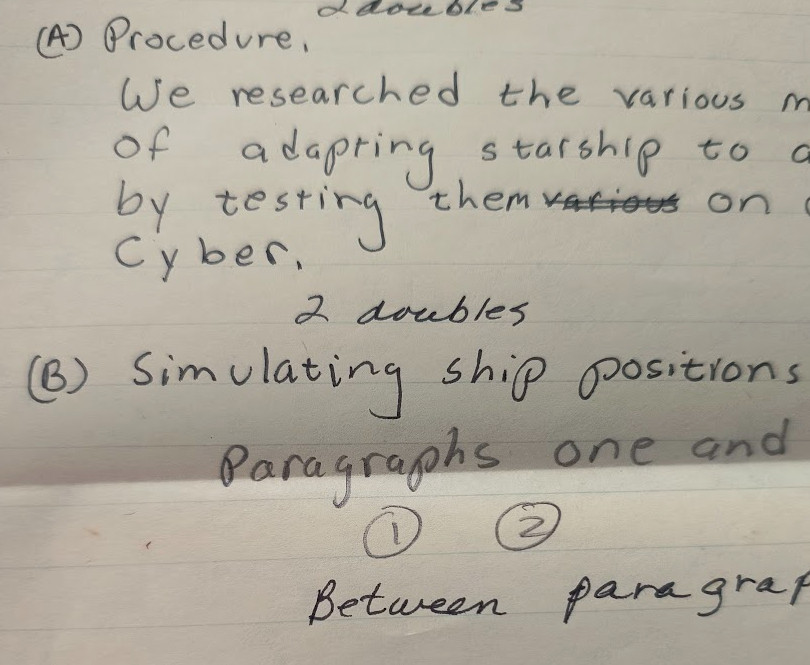 2 doubles
(A) Procedure.
We researched the various
of adapting starship to
by testing them various on
Cyber.
2 doubles
(B) Simulating ship positions
Paragraphs one and
① ②
Between paragrap